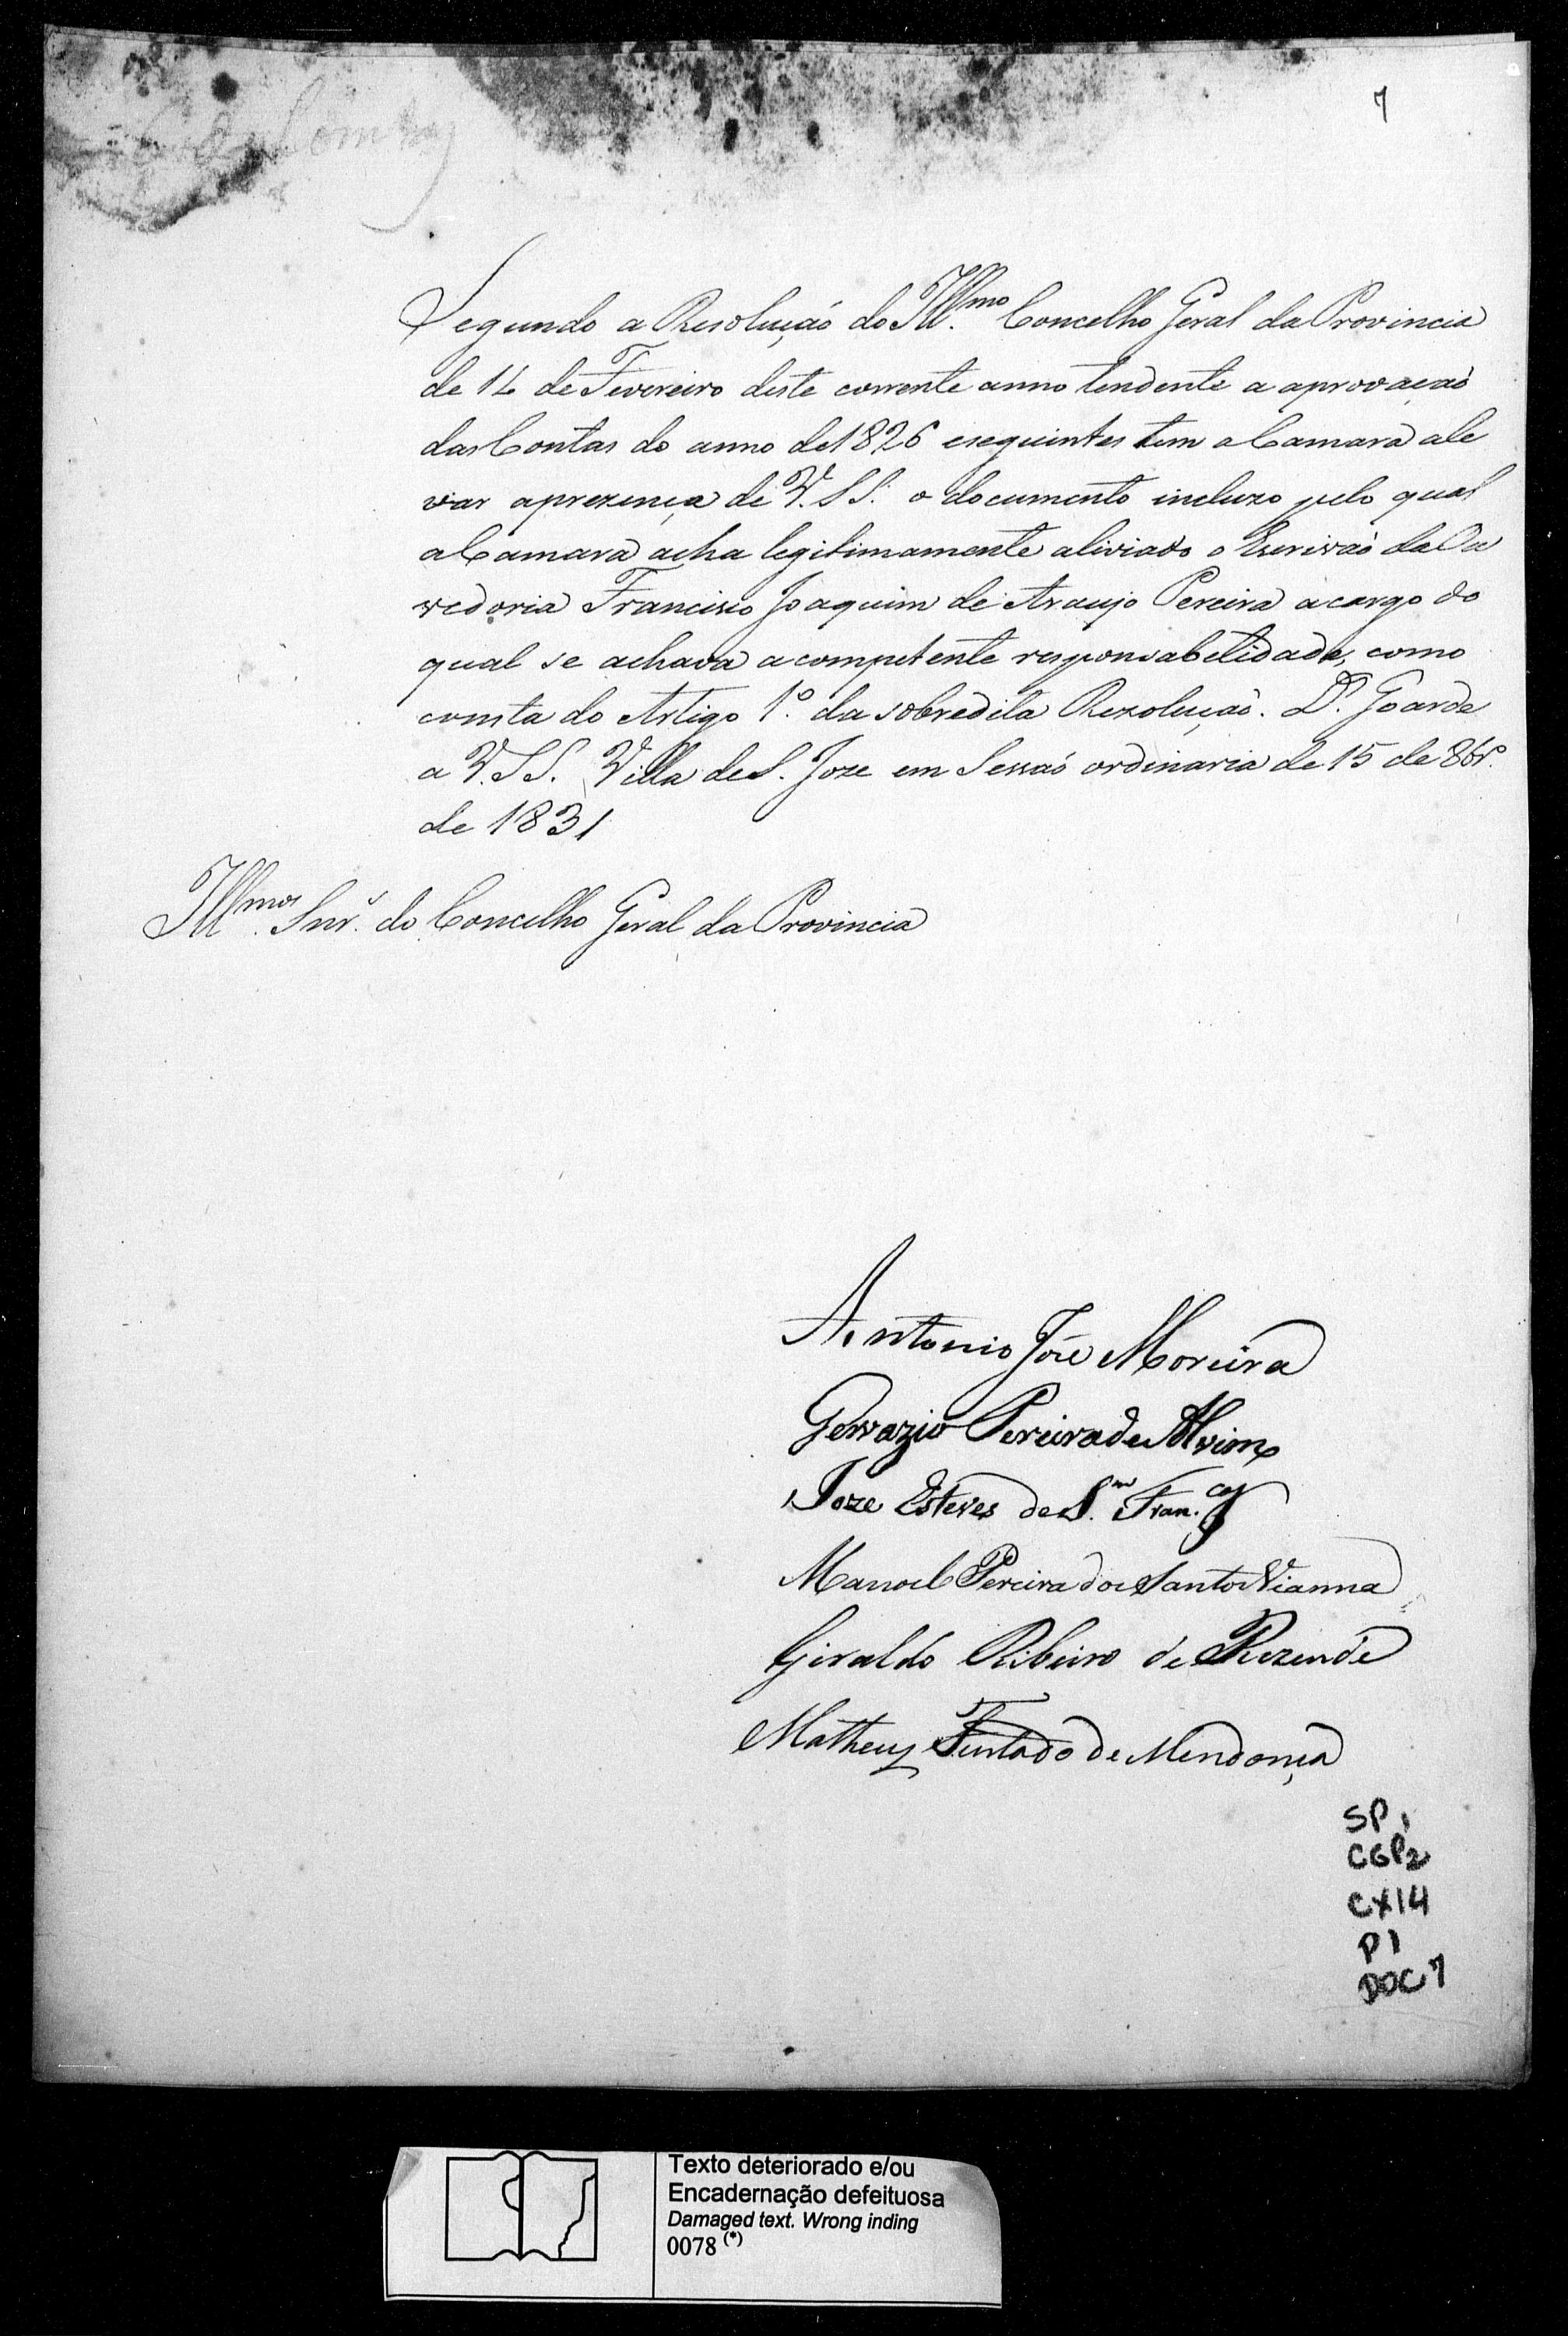 7
Segundo a Resolução do Ill.mo Concelho Geral da Provincia
de 14 de Fevereiro deste corrente anno tendente a aprovação
das Contas do anno de 1826 eseguintes tem a Camara ale
var aprezença de V.SS. o documento incluzo pelo qual
a Camara acha legitimamente aliviado o Escrivaõ da Ou
vedoria Francisco Joaquim de Araujo Pereira acargo do
qual se achava a competente responsabelidade, como
consta do Artigo 1.º da sobredita Rezolução. D.s Goarde
a V.SS. Villa de S. Joze em Sessaõ ordinaria de 15 de 8br.º
de 1831
Ill.mos Snr.s do Concelho Geral da Provincia
Antonio José Moreira
Gervazio Pereira de Alvim
Joze Esteves de S.m Fran.co
Manoel Pereira dos Santos Vianna
Giraldo Ribeiro de Rezende
Matheus Furtado de Mendonça
SP 1
CGP2
CX14
P1
DOC 7
Texto deteriorado e/ou
Encadernação defeituosa
Damaged text. Wrong inding
0078 (*)